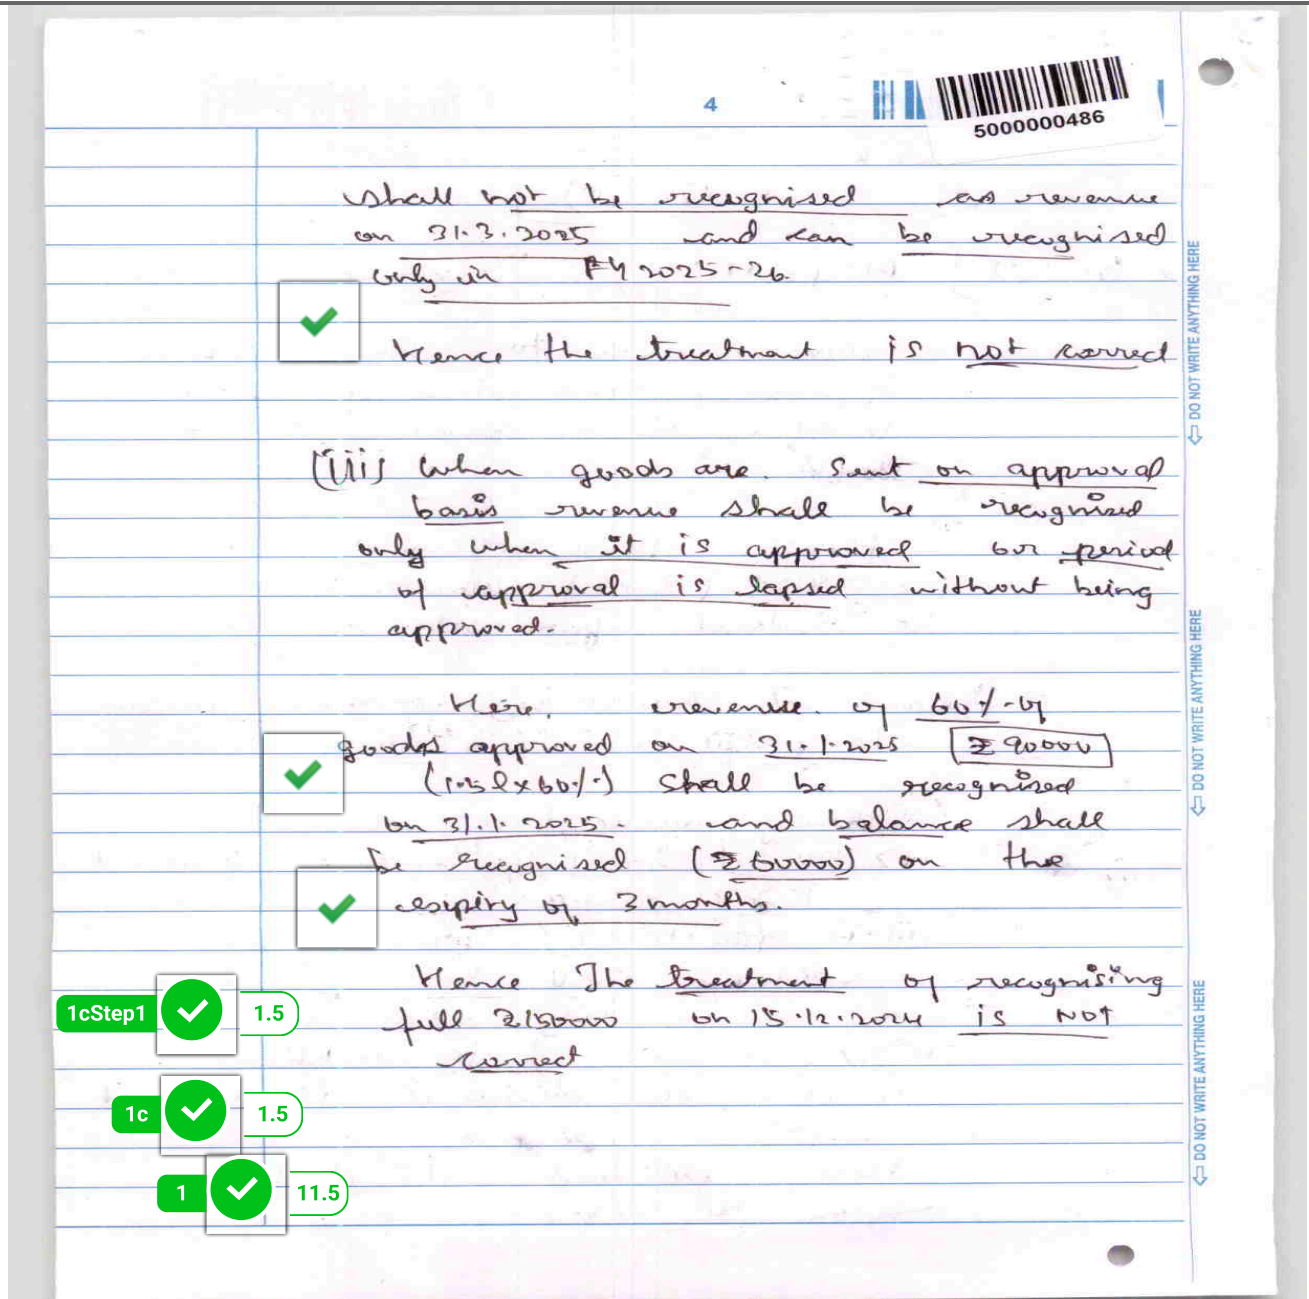 4
5000000486
shall not be recognised as revenue
on 31.3.2025 and can be recognised
only in FY 2025-26.
Hence the treatment is not correct
(iii) When goods are. Sent on approval
basis revenue shall be recognised
only when it is approved or period
of approval is lapsed without being
approved.
Here, revenue of 60% of
goods approved on 31.1.2025 ₹ 90000
(1.5 l x 60%) shall be recognised
on 31.1.2025. and balance shall
be recognised (₹ 60000) on the
expiry of 3 months.
Hence The treatment of recognising
full ₹ 150000 on 15.12.2024 is NOT
correct
1cStep1 1.5
1c 1.5
1 11.5
DO NOT WRITE ANYTHING HERE
DO NOT WRITE ANYTHING HERE
DO NOT WRITE ANYTHING HERE